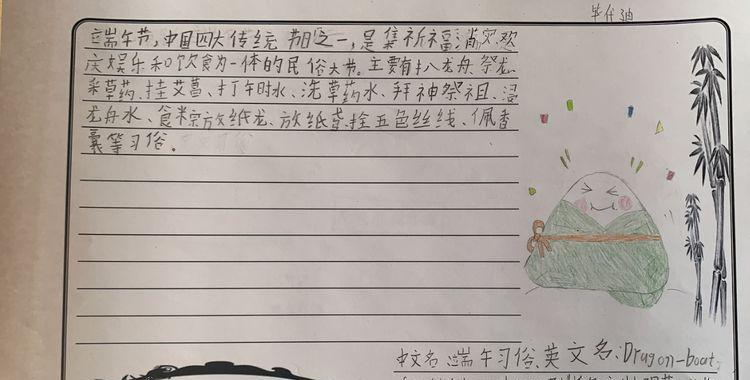 毕代迪
端午节,中国四大传统节日之一,是集祈福消灾、欢
庆娱乐和饮食为一体的民俗大节。主要有扒龙舟、祭龙、
采草药、挂艾菖、打午时水、洗草药水、拜神祭祖、浸
龙舟水、食粽、放纸龙、放纸鸢、拴五色丝线、佩香
囊等习俗。
中文名 端午习俗、英文名:Dragon-boat